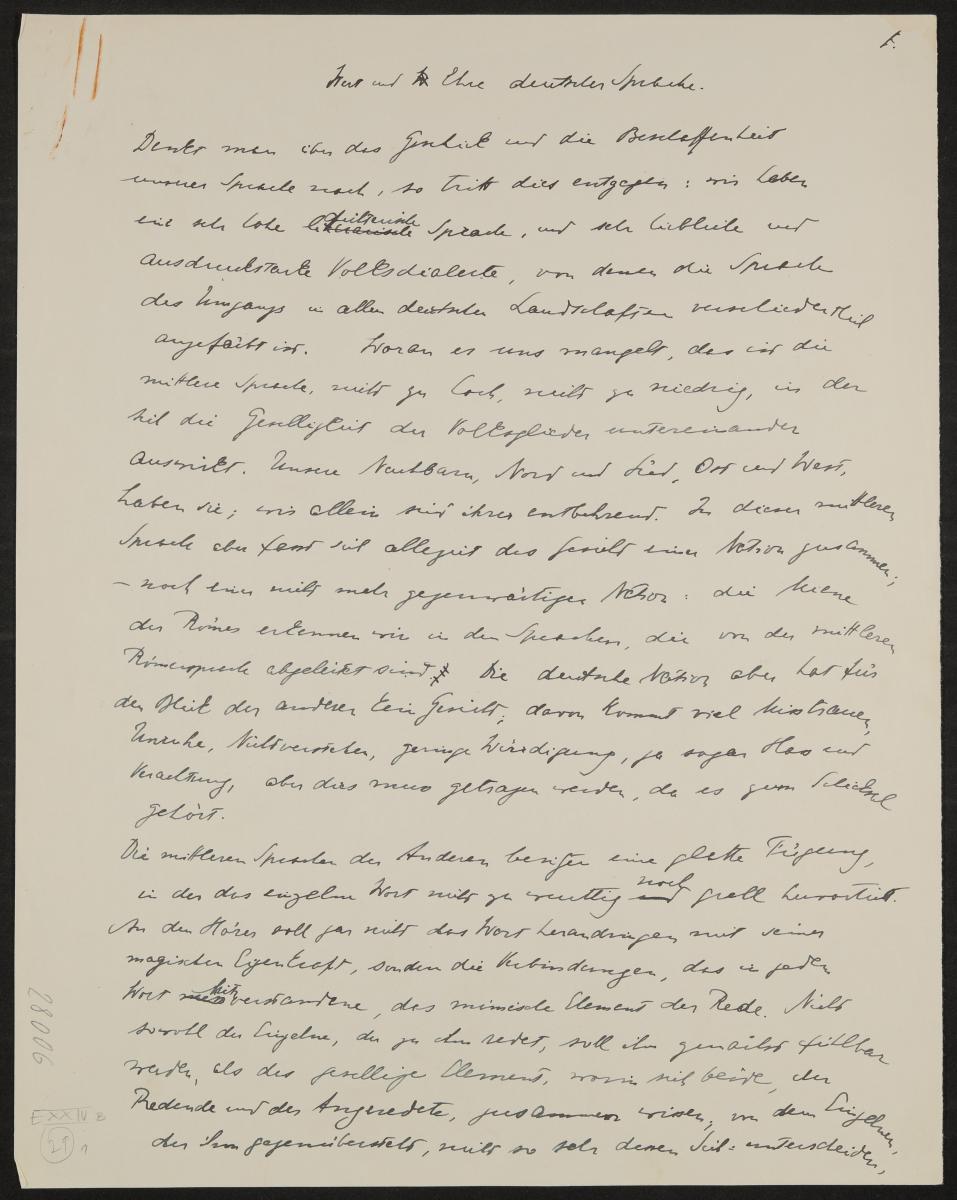 1.
Wert und Ehre deutscher Sprache.
Denkt man über das Geschick und die Beschaffenheit
unserer Sprache nach, so tritt dies entgegen: wir haben
eine sehr hohe dichterische Sprache, und sehr liebliche und
ausdrucksstarke Volksdialecte, von denen die Sprache
des Umgangs in allen deutschen Landschaften verschiedentlich
angefärbt ist. Woran es uns mangelt, das ist die
mittlere Sprache, nicht zu hoch, nicht zu niedrig, in der
sich die Geselligkeit der Volksglieder untereinander
auswirkt. Unsere Nachbarn, Nord und Süd, Ost und West,
haben sie; wir allein sind ihrer entbehrend. In dieser mittleren
Sprache aber fasst sich allezeit das Gesicht einer Nation zusammen;
– noch einer nicht mehr gegenwärtigen Nation: die Miene
der Römer erkennen wir in den Sprachen, die von der mittleren
Römersprache abgeleitet sind. Die deutsche Nation aber hat für
den Blick der anderen kein Gesicht; davon kommt viel Misstrauen,
Unruhe, Nichtverstehen, geringe Würdigung, ja sogar Hass und
Verachtung, aber dies muss getragen werden, da es zum Schicksal
gehört.
Die mittleren Sprachen der Anderen besitzen eine glatte Fügung,
in der das einzelne Wort nicht zu wuchtig noch grell hervortritt.
An den Hörer soll gar nicht das Wort herandringen mit seiner
magischen Eigenkraft, sondern die Verbindungen, das in jedem
Wort mitverstandene, das mimische Element der Rede. Nicht
sowohl der Einzelne, der zu ihm redet, soll ihm zunächst fühlbar
werden, als das gesellige Element, worin sich beide, der
Redende und der Angeredete, zusammen wissen; von dem Einzelnen,
der ihm gegenübersteht, nicht so sehr dessen Sich-unterscheiden,
28006
E XXIV B
29 1